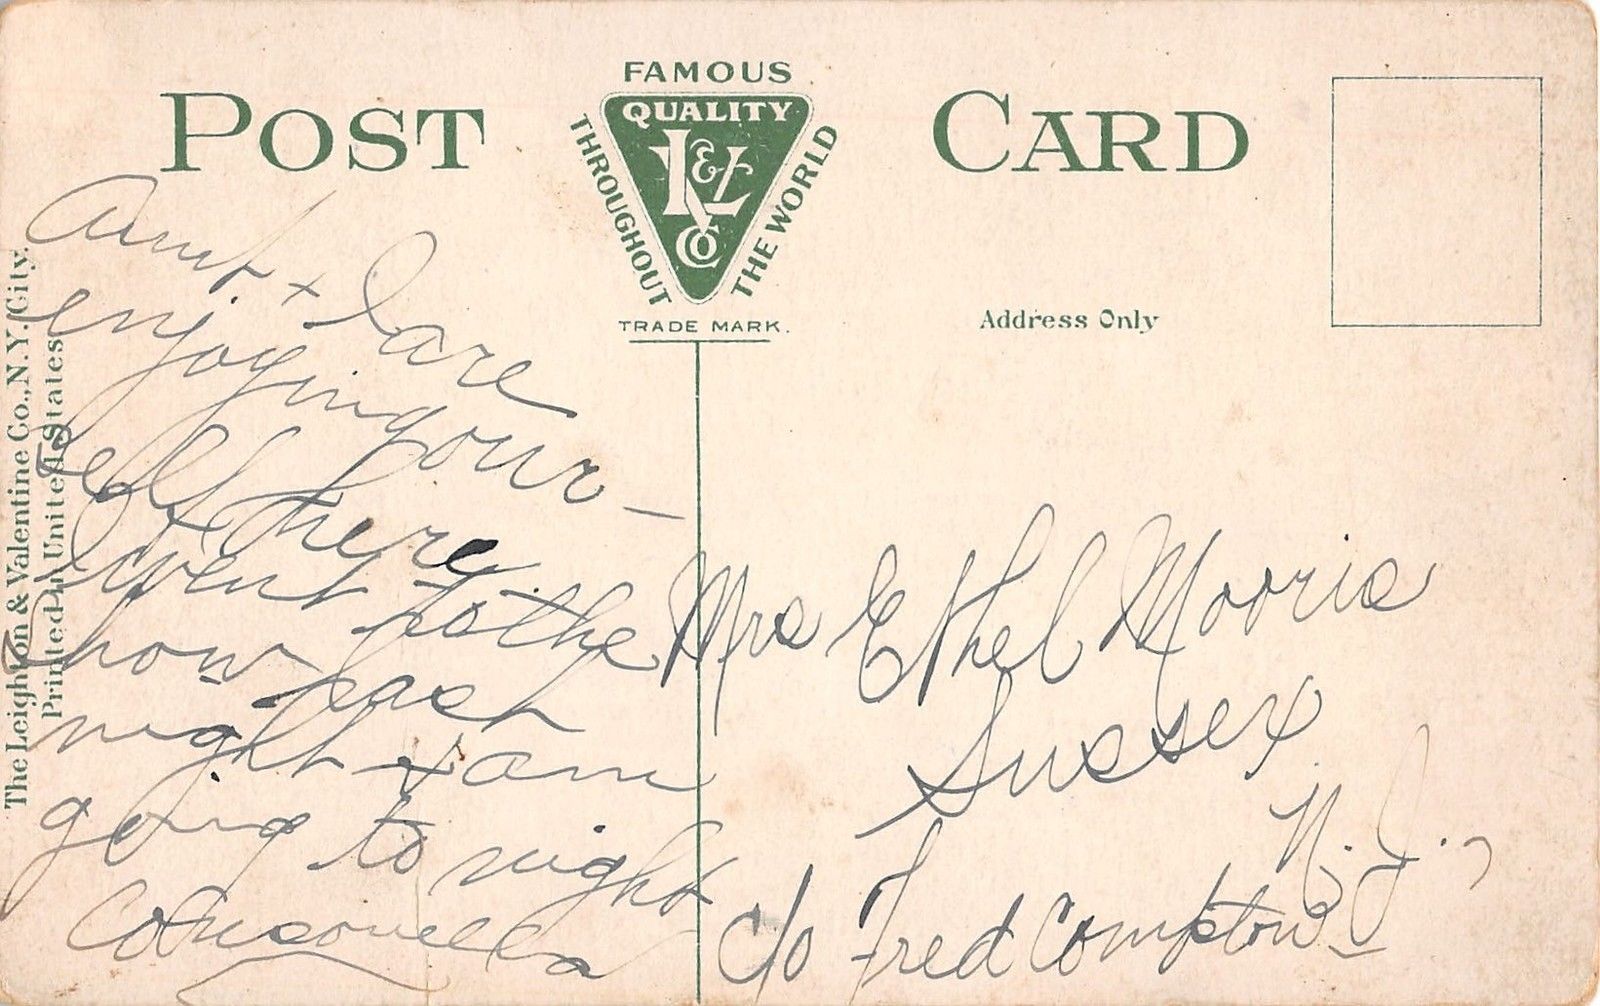 POST CARD
FAMOUS
QUALITY
THROUGHOUT
THE WORLD
L&V
Co
TRADE MARK.
Address Only
The Leighton & Valentine Co., N.Y. City.
Printed in United States
Aunt + I are
enjoying our-
self here
went to the
show last
night + am
going to night
Mrs Ethel Mooris
Sussex
N.J.
c/o Fred Compton